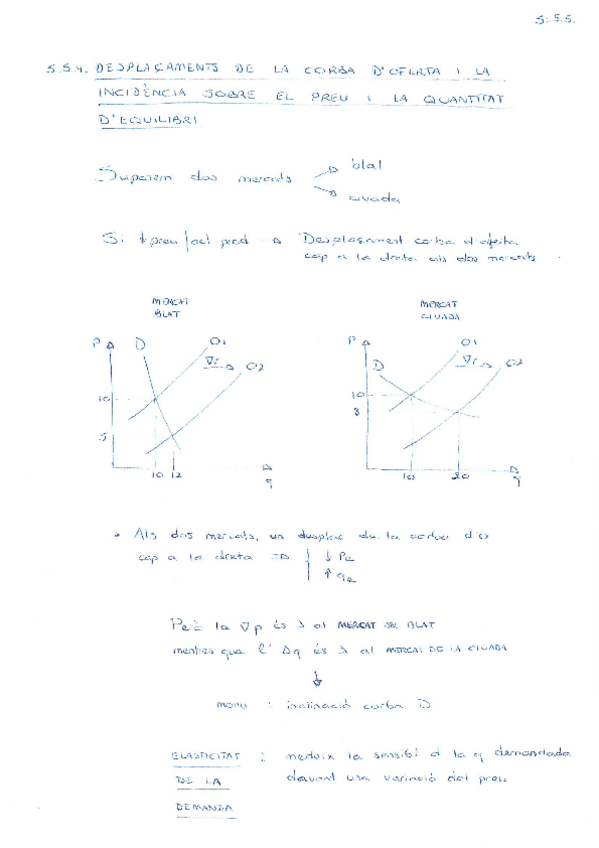 5.5.5.
5.5.4. DESPLAÇAMENTS DE LA CORBA D'OFERTA I LA
INCIDÈNCIA SOBRE EL PREU I LA QUANTITAT
D'EQUILIBRI
Suposem dos mercats
blat
civada
Si ↓ preu fact prod → Desplaçament corba d'oferta
cap a la dreta als dos mercats
MERCAT
BLAT
P D O1
O2
10
5
10 12
q
MERCAT
CIVADA
P O1
D O2
10
8
10 20
q
• Als dos mercats, un desplaç de la corba d'O
cap a la dreta ⇒ ↓ Pe
↑ qe
Però la ∇p és > al MERCAT DE BLAT
mentres que l' Δq és > al MERCAT DE LA CIVADA
↓
motiu : inclinació corba D
ELASTICITAT : medeix la sensibi d la q demandada
DE LA davant una variació del preu
DEMANDA